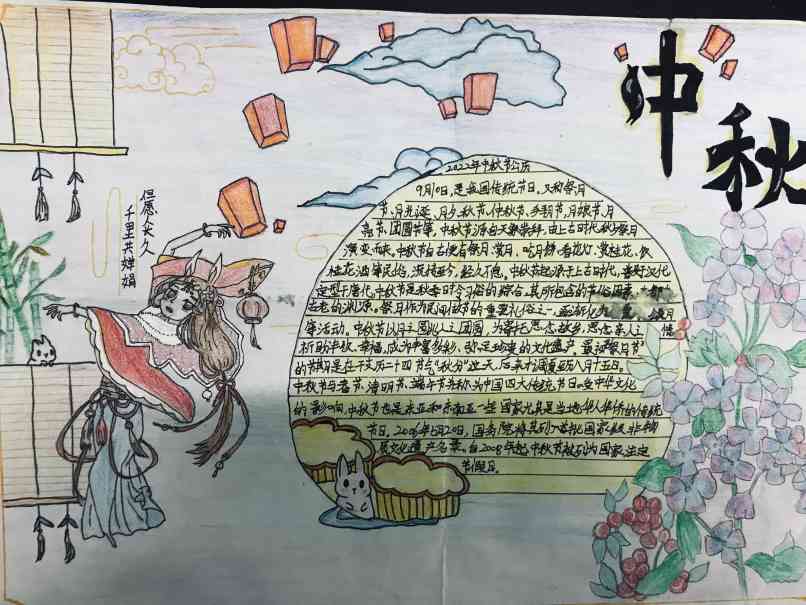 中秋
但愿人长久
千里共婵娟
2022年中秋节公历
9月10日,是我国传统节日,又称祭月
节、月光诞、月夕、秋节、仲秋节、月娘节、月
亮节、团圆节等,中秋节源自天象崇拜,由上古时代秋夕祭月
演变而来。中秋节自古便有祭月、赏月、吃月饼、看花灯、赏桂花、饮
桂花酒等民俗,流传至今,经久不息。中秋节起源于上古时代,普及于汉代
定型于唐代。中秋节是秋季时令习俗的综合,其所包含的节俗因素,大都
古老的渊源。祭月作为民间过节的重要礼俗之一,逐渐化为赏月
等活动。中秋节以月之圆兆人之团圆,为寄托思念故乡,思念亲人之情
祈盼丰秋、幸福,成为丰富多彩、弥足珍贵的文化遗产。最初"祭月节"
的节期是在干支历二十四节气"秋分"这天,后来才调至夏历八月十五日。
中秋节与春节、清明节、端午节并称为中国四大传统节日。受中华文化
的影响,中秋节也是东亚和东南亚一些国家尤其是当地华人华侨的传统
节日。2006年5月20日,国务院将其列入首批国家级非物
质文化遗产名录。自2008年起中秋节被列为国家法定
节假日。